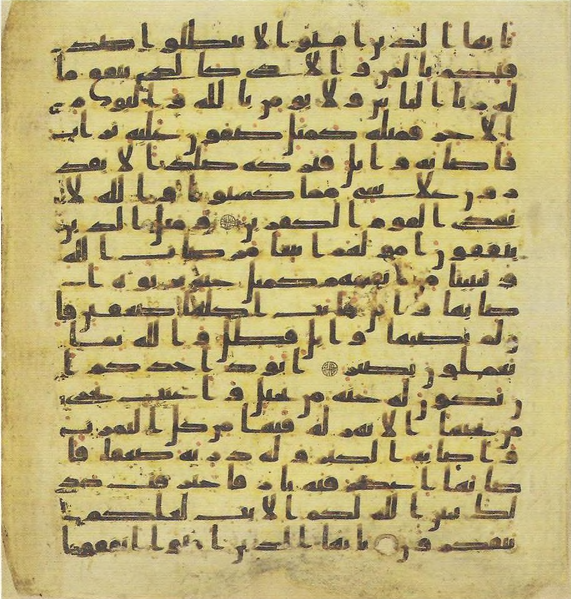 يايها الذين امنوا لا تبطلوا صد
قتكم بالمن والاذى كالذى ينفق ما
له ريا الناس ولا يومن بالله واليوم
الاخر فمثله كمثل صفون عليه تراب
فاصابه وابل فتركه صلدا لا يقد
رون على شى مما كسبوا والله لا
يهدى القوم الكفرين ومثل الذين
ينفقون امولهم ابتغا مرضات الله
وتثبيتا من انفسهم كمثل جنه بربوه ا
صابها وابل فاتت اكلها ضعفين فا
ن لم يصبها وابل فطل والله بما
تعملون بصير ايود احدكم ا
ن تكون له جنه من نخيل واعنب تجرى
من تحتها الانهر له فيها من كل الثمرت
واصابه الكبر وله ذريه ضعفا فا
صابها اعصر فيه نار فاحترقت كذ
لك يبين الله لكم الايت لعلكم
تتفكرون يايها الذين امنوا انفقوا